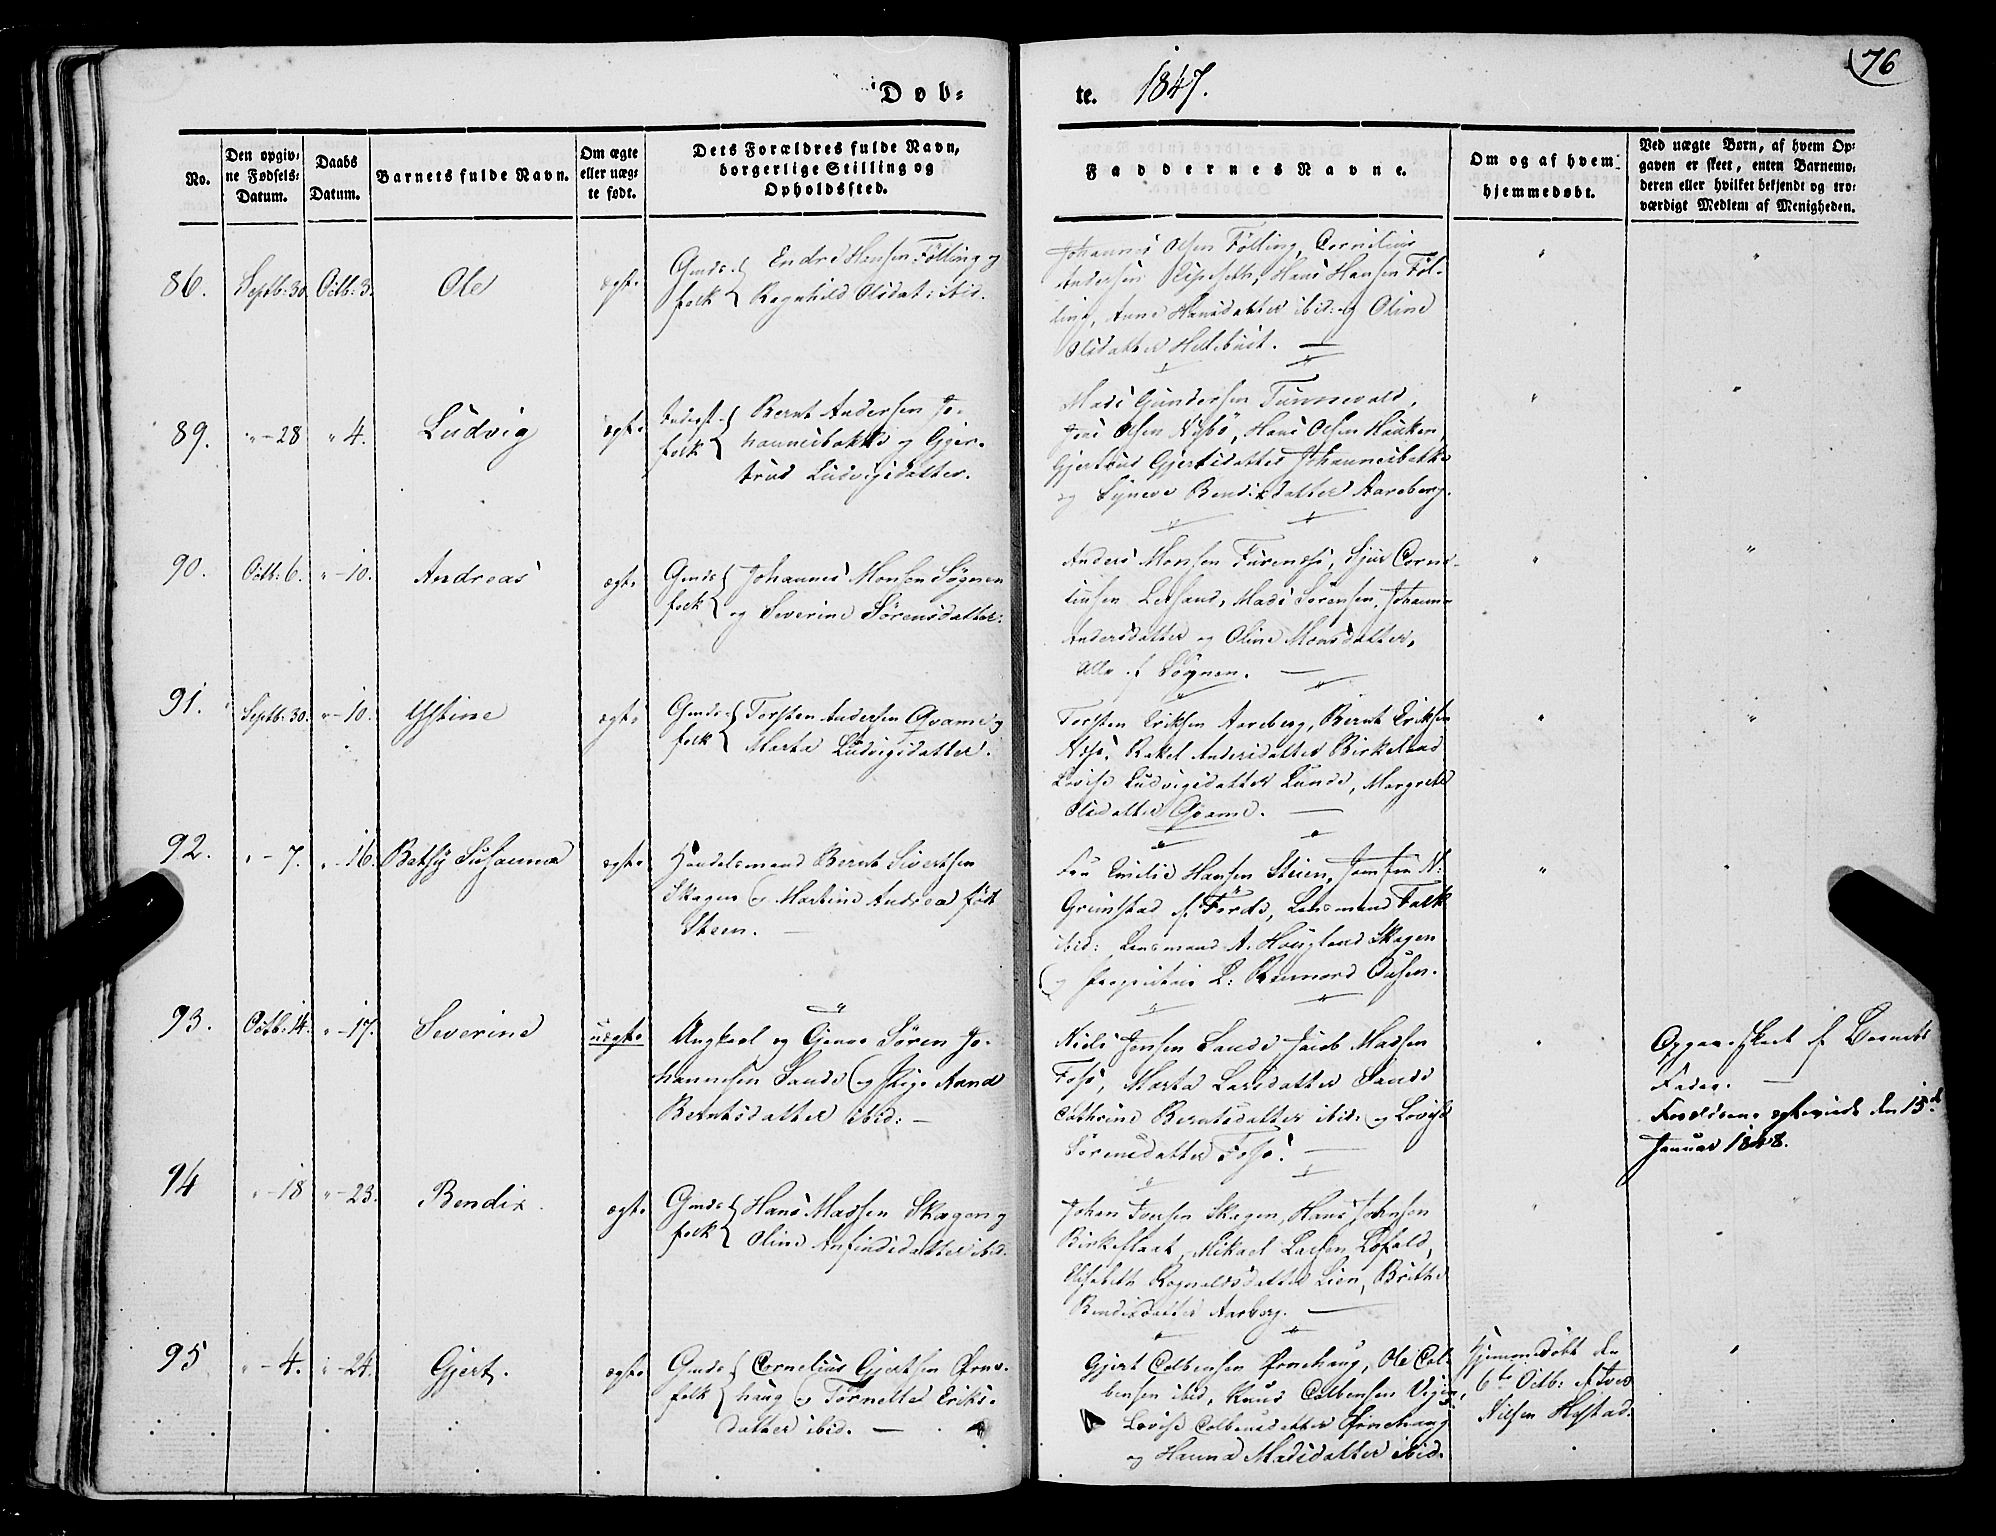 Døb-
te. 1847.
76
No.
Den opgiv-
ne Fødsels-
Datum.
Daabs
Datum.
Barnets fulde Navn.
Om ægte
eller uæg-
te født.
Dets Forældres fulde Navn,
borgerlige Stilling og
Opholdssted.
Faddernes Navne.
Om og af hvem
hjemmedøbt.
Ved uægte Børn, af hvem Op-
gaven er skeet, enten Barnemo-
deren eller hvilket bekjendt og tro-
værdigt Medlem af Menigheden.
86. Septb: 30 Octb: 3. Ole ægte
Gmds-
folk
Endre Hansen Fölling og
Ragnhild Olsdat: ibid.
Johannes Olsen Fölling, Cornelius
Andersen Ripeseth, Hans Hansen Föl-
ling, Anne Hansdatter ibid: og Oline
Olsdatter Hellebust. —
89. " - 28 " 4. Ludvig ægte
Inderst-
folk
Bernt Andersen Jo-
hannesbakke og Gjer-
trud Ludvigsdatter.
Mads Gundersen Tunnevald,
Jens Olsen Nybö, Hans Olsen Hauken,
Gjertrud Gjertsdatter Johannesbakke
og Synneve Bendixdatter Aareberg.
90. Octb: 6. " - 10. Andreas ægte
Gmds-
folk
Johannes Monsen Sögnen
og Severine Sörensdatter.
Anders Monsen Furenæs, Sjur Corne-
liusen Leesand, Mads Sörensen, Johanne
Andersdatter og Oline Monsdatter,
Alle af Sögnen. —
91. Septb: 30. " - 10. Ystine ægte
Gmds-
folk
Torsten Andersen Qvame og
Marta Ludvigsdatter.
Torsten Eriksen Aareberg, Bernt Eriksen
Rakel Andersdatter Birkeland
Lovise Ludvigsdatter Lunde, Margrete
Olsdatter Qvame. —
92. " - 7. " - 16. Betsy Susanna ægte
Handelsmand Bernt Sivertsen
Skagen og Martine Andrea född
Steen. —
Fru Emilie Hansen Steien, Jomfru N:
Grimstad af Förde, Lensmand Falk
ibid: Lensmand A. Hougland Skagen
og
93. Octb: 14. " - 17. Severine uægte
Ungkarl og Sören Jo-
hannesen Sande og Pige Anne
Berntsdatter ibid: —
Niels Jensen Sande Jacob Madsen
Fossö, Marta Larsdatter Sande
Cathrine Berntsdatter ibid: og Lovise
Sörensdatter Fossö. —
Opgave skeet af Barnets
Fader. —
Forældrene ægteviede den 15de
Januar 1848.
94 " - 18 " - 23. Bendix ægte
Gmds-
folk
Hans Madsen Skagen og
Oline Anfindsdatter ibid.
Johan Iversen Skagen, Hans Johnsen
Birkeflaat, Mikael Larsen Löfald,
Elisabeth Ragnaldsdatter Lien, Brithe
Bendixdatter Aarberg. —
95 " - 4. " - 24. Gjert. ægte
Gmds-
folk
Cornelius Gjertsen Örne-
haug og Törnette Eriks-
datter ibid. —
Gjert Colbensen Örnehaug, Ole Col-
bensen ibid, Knud Colbensen
Lovise Colbensdatter Örnehaug
og Hanna Madsdatter ibid.
Hjemmedöbt den
6te Octb: af Iver
Nilsen Hystad.